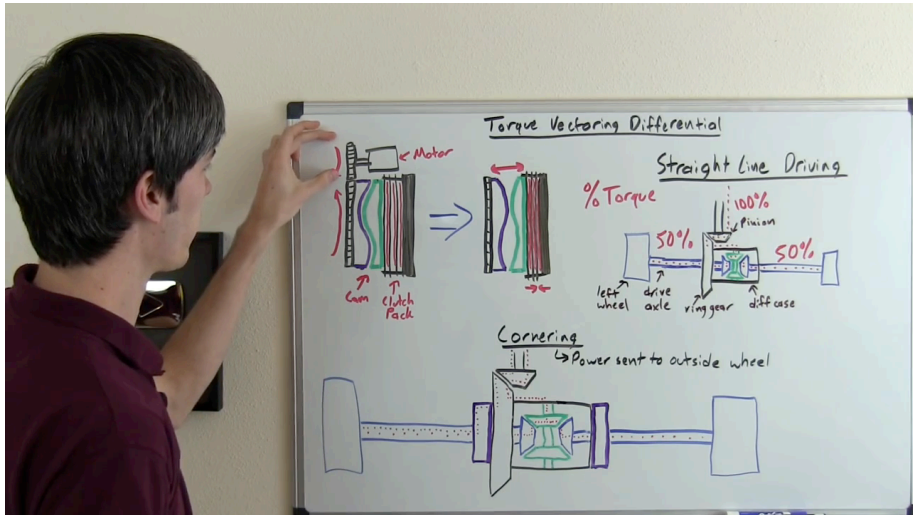 Torque Vectoring Differential
Motor
Cam
Clutch
Pack
% Torque
Straight Line Driving
100%
Pinion
50%
50%
left
wheel
drive
axle
ring gear
diff case
Cornering
↳ Power sent to outside wheel